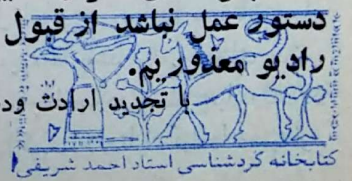 دستور عمل نباشد از قبول
رادیو معذوریم.
با تجدید ارادت
کتابخانه کردشناسی استاد احمد شریفی